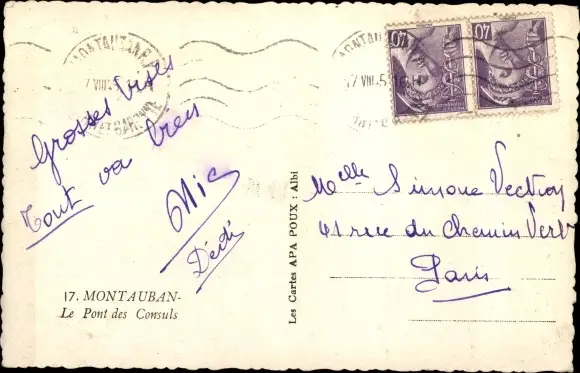 MONTAUBAN
17 VIII
TARN ET GARONNE
MONTAUBAN
17 VIII 5 16 H
40
40
Grosses bises
Tout va bien
Dédé
17. MONTAUBAN-
Le Pont des Consuls
Les Cartes APA POUX : Albi
Melle Simone
41 rue du Chemin Vert
Paris